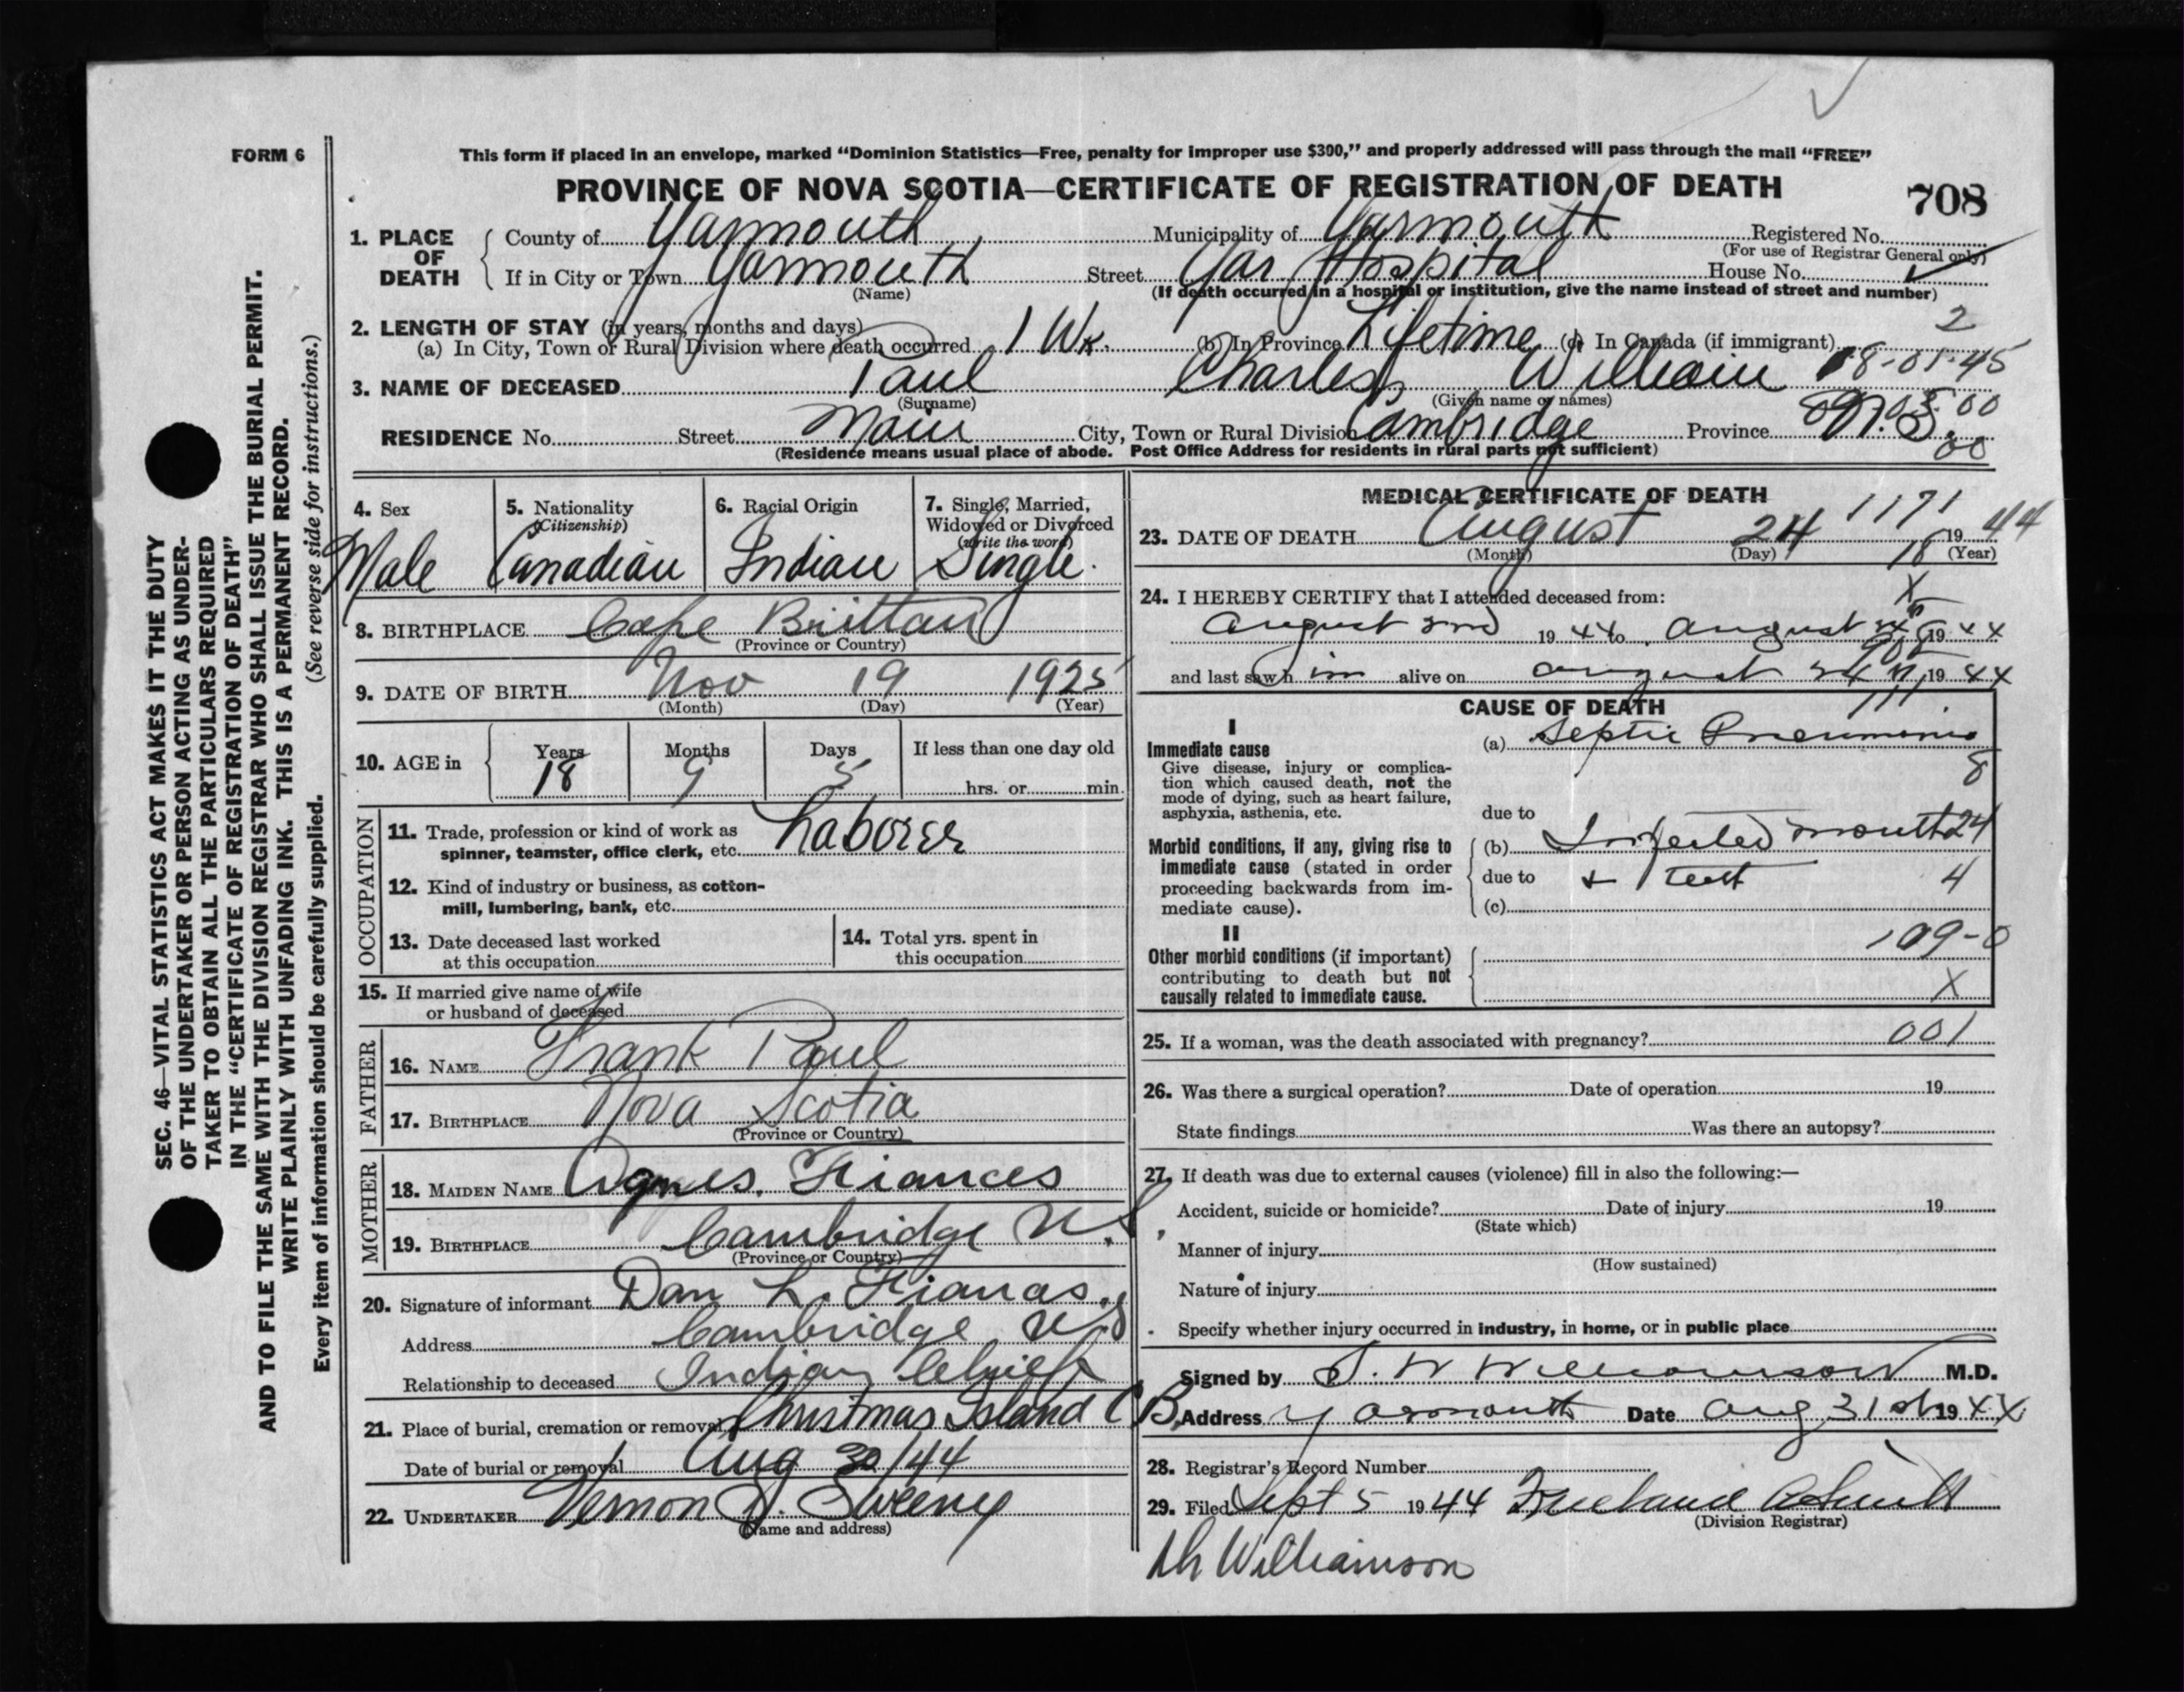 FORM 6
This form if placed in an envelope, marked "Dominion Statistics—Free, penalty for improper use $300," and properly addressed will pass through the mail "FREE"
PROVINCE OF NOVA SCOTIA—CERTIFICATE OF REGISTRATION OF DEATH
708
1. PLACE OF DEATH
County of Yarmouth Municipality of Yarmouth Registered No.
(For use of Registrar General only)
If in City or Town Yarmouth Street Yar Hospital House No.
(Name) (If death occurred in a hospital or institution, give the name instead of street and number)
2. LENGTH OF STAY (in years, months and days)
2
(a) In City, Town or Rural Division where death occurred 1 Wk. (b) In Province Lifetime (c) In Canada (if immigrant)
18-01-45
3. NAME OF DECEASED Paul Charles William
(Surname) (Given name or names)
RESIDENCE No. Street Main City, Town or Rural Division Cambridge Province N.S.
00
(Residence means usual place of abode. Post Office Address for residents in rural parts not sufficient)
4. Sex
Male
5. Nationality
(Citizenship)
Canadian
6. Racial Origin
Indian
7. Single, Married,
Widowed or Divorced
(write the word)
Single.
8. BIRTHPLACE Cape Brittan
(Province or Country)
9. DATE OF BIRTH Nov 19 1925
(Month) (Day) (Year)
10. AGE in
Years Months Days If less than one day old
18 9 5 hrs. or min.
OCCUPATION
11. Trade, profession or kind of work as
spinner, teamster, office clerk, etc. Laborer
12. Kind of industry or business, as cotton-
mill, lumbering, bank, etc.
13. Date deceased last worked
at this occupation
14. Total yrs. spent in
this occupation
15. If married give name of wife
or husband of deceased
FATHER
16. NAME Frank Paul
17. BIRTHPLACE Nova Scotia
(Province or Country)
MOTHER
18. MAIDEN NAME Agnes. Frances
19. BIRTHPLACE Cambridge N.S.
(Province or Country)
20. Signature of informant Dan L. Francis.
Address Cambridge NS
Relationship to deceased Indian Chief
21. Place of burial, cremation or removal Christmas Island CB
Date of burial or removal Aug 30/44
22. UNDERTAKER Vernon J. Sweeny
(Name and address)
MEDICAL CERTIFICATE OF DEATH
1171
23. DATE OF DEATH August 24 1944
(Month) (Day) (Year)
18
24. I HEREBY CERTIFY that I attended deceased from:
X
August 1944 to August 24 1944
and last saw him alive on august 24 th 1944
CAUSE OF DEATH
111
I
Immediate cause
Give disease, injury or complica-
tion which caused death, not the
mode of dying, such as heart failure,
asphyxia, asthenia, etc.
(a) Septic Pneumonia
8
due to
Morbid conditions, if any, giving rise to
immediate cause (stated in order
proceeding backwards from im-
mediate cause).
(b) Infected mouth
24
due to + teeth
4
(c)
II
109-0
Other morbid conditions (if important)
contributing to death but not
causally related to immediate cause.
X
25. If a woman, was the death associated with pregnancy? 001
26. Was there a surgical operation? Date of operation 19
State findings Was there an autopsy?
27. If death was due to external causes (violence) fill in also the following:—
Accident, suicide or homicide? Date of injury 19
(State which)
Manner of injury
(How sustained)
Nature of injury
Specify whether injury occurred in industry, in home, or in public place
Signed by S. W Williamson M.D.
Address Yarmouth Date Aug 31st 1944
28. Registrar's Record Number
29. Filed Sept 5 1944
(Division Registrar)
Dr Williamson
SEC. 46—VITAL STATISTICS ACT MAKES IT THE DUTY
OF THE UNDERTAKER OR PERSON ACTING AS UNDER-
TAKER TO OBTAIN ALL THE PARTICULARS REQUIRED
IN THE "CERTIFICATE OF REGISTRATION OF DEATH"
AND TO FILE THE SAME WITH THE DIVISION REGISTRAR WHO SHALL ISSUE THE BURIAL PERMIT.
WRITE PLAINLY WITH UNFADING INK. THIS IS A PERMANENT RECORD.
Every item of information should be carefully supplied. (See reverse side for instructions.)